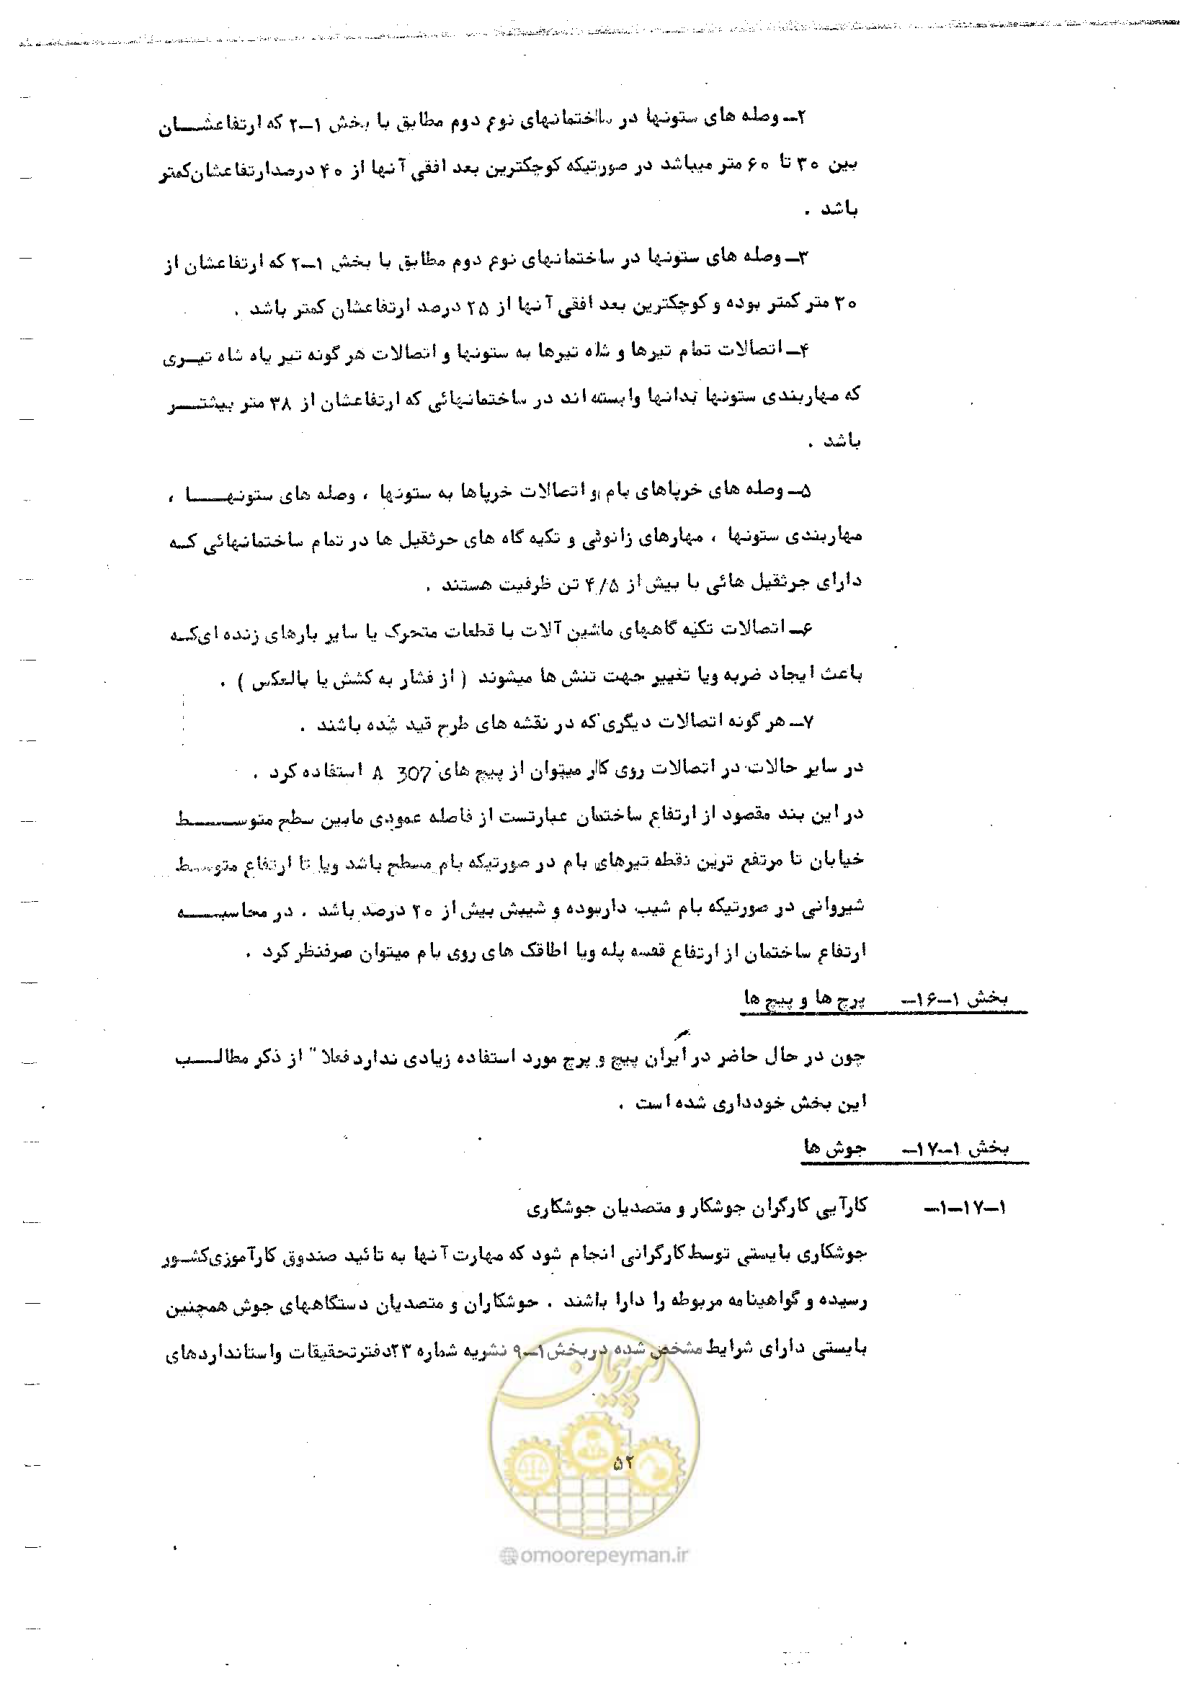 ۲ــ وصله های ستونها در ساختمانهای نوع دوم مطابق با بخش ۱ــ۲ که ارتفاعشـــان
بین ۳۰ تا ۶۰ متر میباشد در صورتیکه کوچکترین بعد افقی آنها از ۴۰ درصدارتفاعشان‌کمتر
باشد .
۳ــ وصله های ستونها در ساختمانهای نوع دوم مطابق با بخش ۱ــ۲ که ارتفاعشان از
۳۰ متر کمتر بوده و کوچکترین بعد افقی آنها از ۲۵ درصد ارتفاعشان کمتر باشد .
۴ــ اتصالات تمام تیرها و شاه تیرها به ستونها و اتصالات هر گونه تیر یاه شاه تیـری
که مهاربندی ستونها بدانها وابسته اند در ساختمانهائی که ارتفاعشان از ۳۸ متر بیشتـــر
باشد .
۵ــ وصله های خرپاهای بام و اتصالات خرپاها به ستونها ، وصله های ستونهـــا ،
مهاربندی ستونها ، مهارهای زانوئی و تکیه گاه های جرثقیل ها در تمام ساختمانهائی کـه
دارای جرثقیل هائی با بیش از ۴/۵ تن ظرفیت هستند .
۶ــ اتصالات تکیه گاههای ماشین آلات با قطعات متحرک یا سایر بارهای زنده ای‌کـه
باعث ایجاد ضربه ویا تغییر جهت تنش ها میشوند ( از فشار به کشش یا بالعکس ) .
۷ــ هر گونه اتصالات دیگری که در نقشه های طرح قید شده باشند .
در سایر حالات در اتصالات روی کار میتوان از پیچ های A 307 استفاده کرد .
در این بند مقصود از ارتفاع ساختمان عبارتست از فاصله عمودی مابین سطح متوســـط
خیابان تا مرتفع ترین نقطه تیرهای بام در صورتیکه بام مسطح باشد ویا تا ارتفاع متوسـط
شیروانی در صورتیکه بام شیب داربوده و شیبش بیش از ۲۰ درصد باشد . در محاسبـــه
ارتفاع ساختمان از ارتفاع قفسه پله ویا اطاقک های روی بام میتوان صرفنظر کرد .
بخش ۱ــ۱۶ــ پرچ ها و پیچ ها
چون در حال حاضر در ایران پیچ و پرچ مورد استفاده زیادی ندارد فعلا" از ذکر مطالـــب
این بخش خودداری شده است .
بخش ۱ــ۱۷ــ جوش ها
۱ــ۱۷ــ۱ــ کارآیی کارگران جوشکار و متصدیان جوشکاری
جوشکاری بایستی توسط کارگرانی انجام شود که مهارت آنها به تائید صندوق کارآموزی‌کشـور
رسیده و گواهینامه مربوطه را دارا باشند . جوشکاران و متصدیان دستگاههای جوش همچنین
بایستی دارای شرایط مشخص شده در بخش ۱ــ۹ نشریه شماره ۲۳دفترتحقیقات واستانداردهای
امور پیمان
۵۲
@omoorepeyman.ir